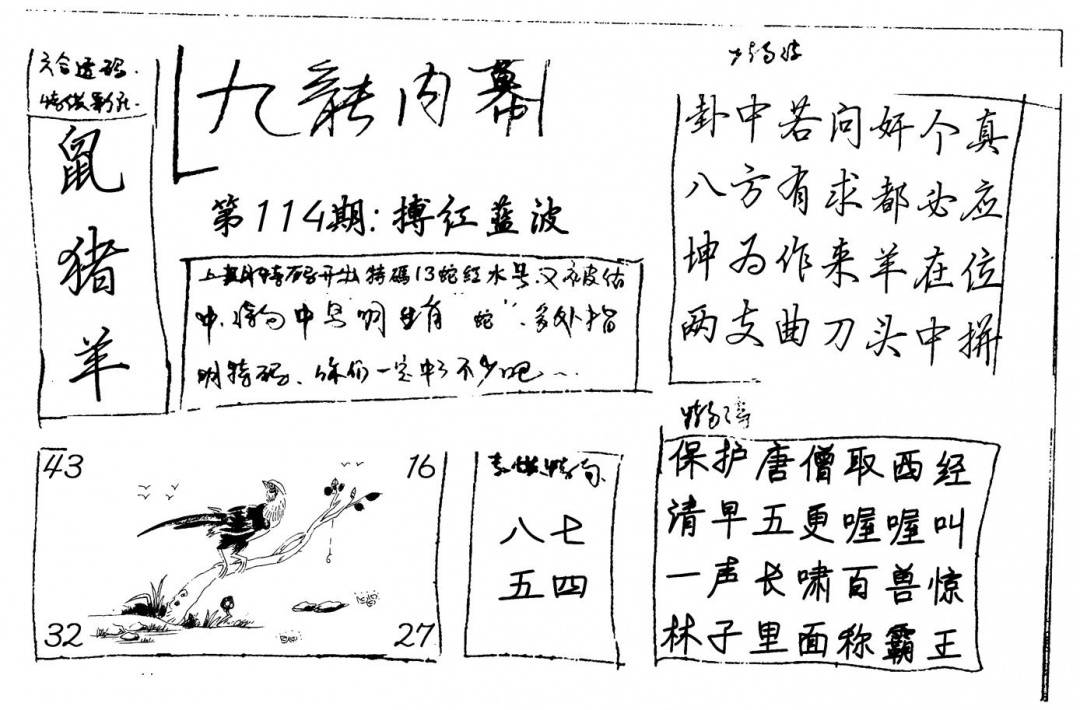 六合透码.
鼠
猪
羊
九龍内幕
第114期:搏红蓝波
上期特码开出特碼13蛇红水号又被估
中,中号明生肖"蛇",多处指
明特码、你们一定中了不少吧~
卦中若问奸个真
八方有求都必应
坤为作来羊在位
两支曲刀头中拼
43
16
32
27
八七
五四
保护唐僧取西经
清早五更喔喔叫
一声长啸百兽惊
林子里面称霸王